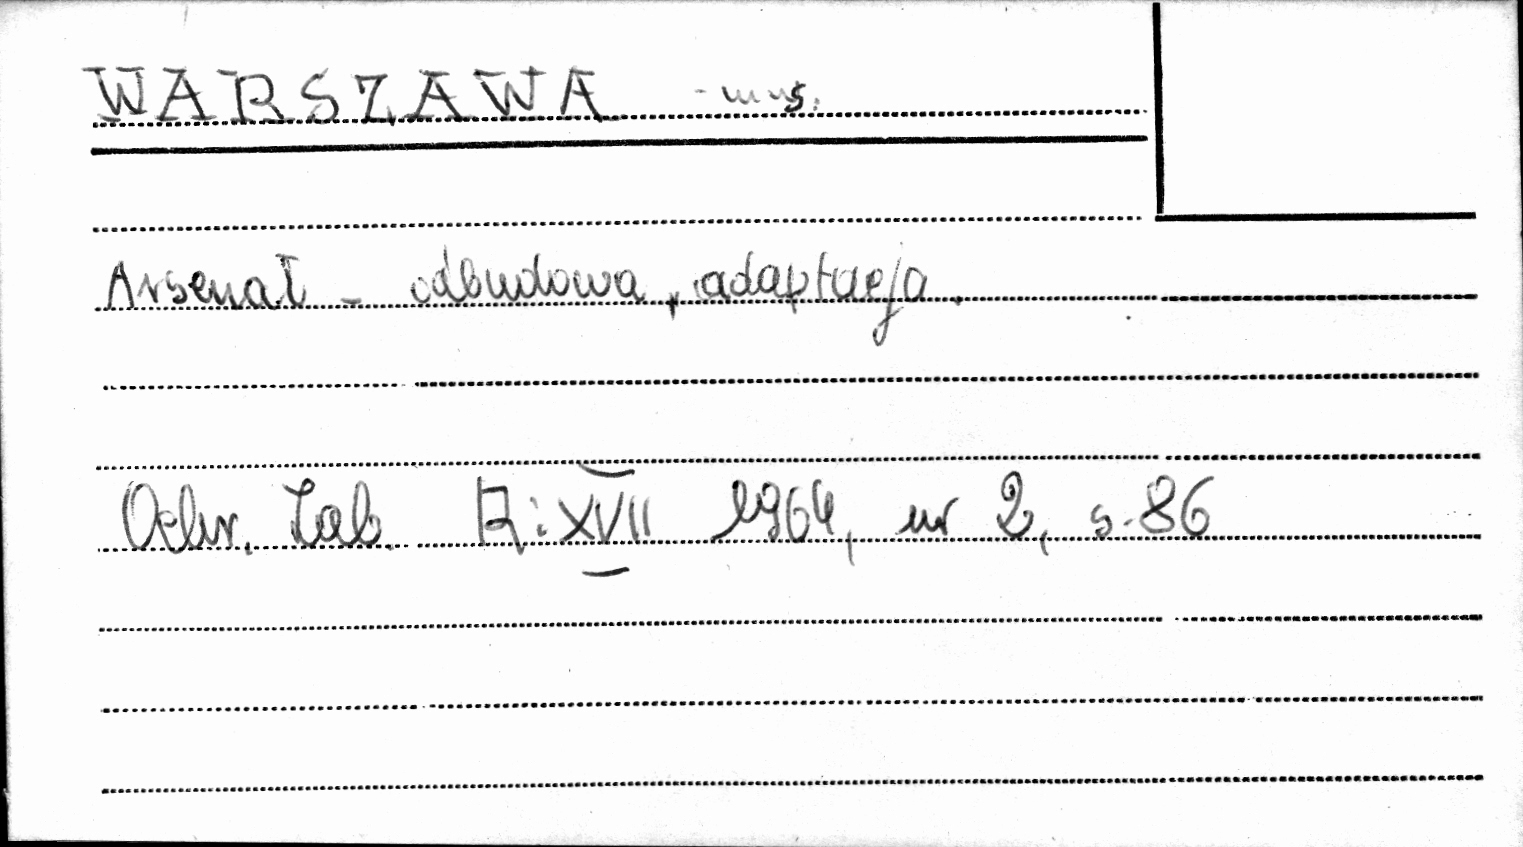 WARSZAWA
Arsenał - odbudowa, adaptacja.
Ochr. Zab. R: XVII 1964, nr 2, s. 86